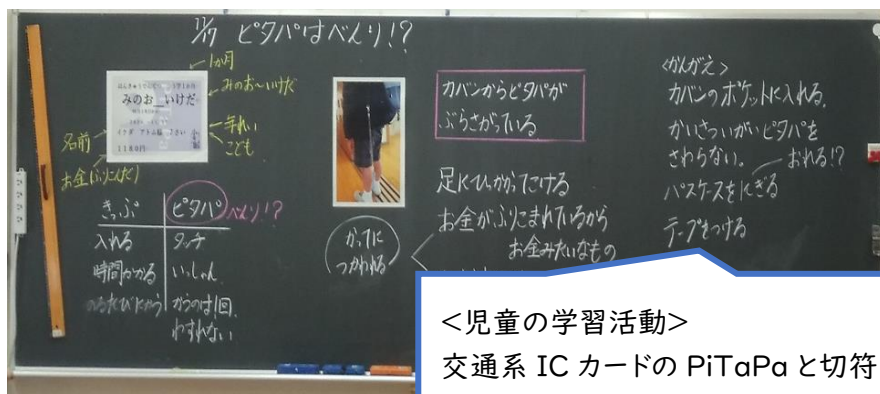 11/17 ピタパはべんり!?
1か月
みのお〜いけだ
みのお_いけだ
1180円
名前
年れい
こども
お金(ふりこんだ)
きっぷ
ピタパ
べんり!?
入れる
タッチ
時間かかる
いっしゅん
のるたびにかう
かうのは1回
わすれない
カバンからピタパが
ぶらさがっている
足にひっかってこける
お金がふりこまれているから
お金みたいなもの
かってに
つかわれる
<かんがえ>
カバンのポケットに入れる。
かいさついがいピタパを
さわらない。
おれる!?
パスケースをにぎる
テープをつける
<児童の学習活動>
交通系 IC カードの PiTaPa と切符